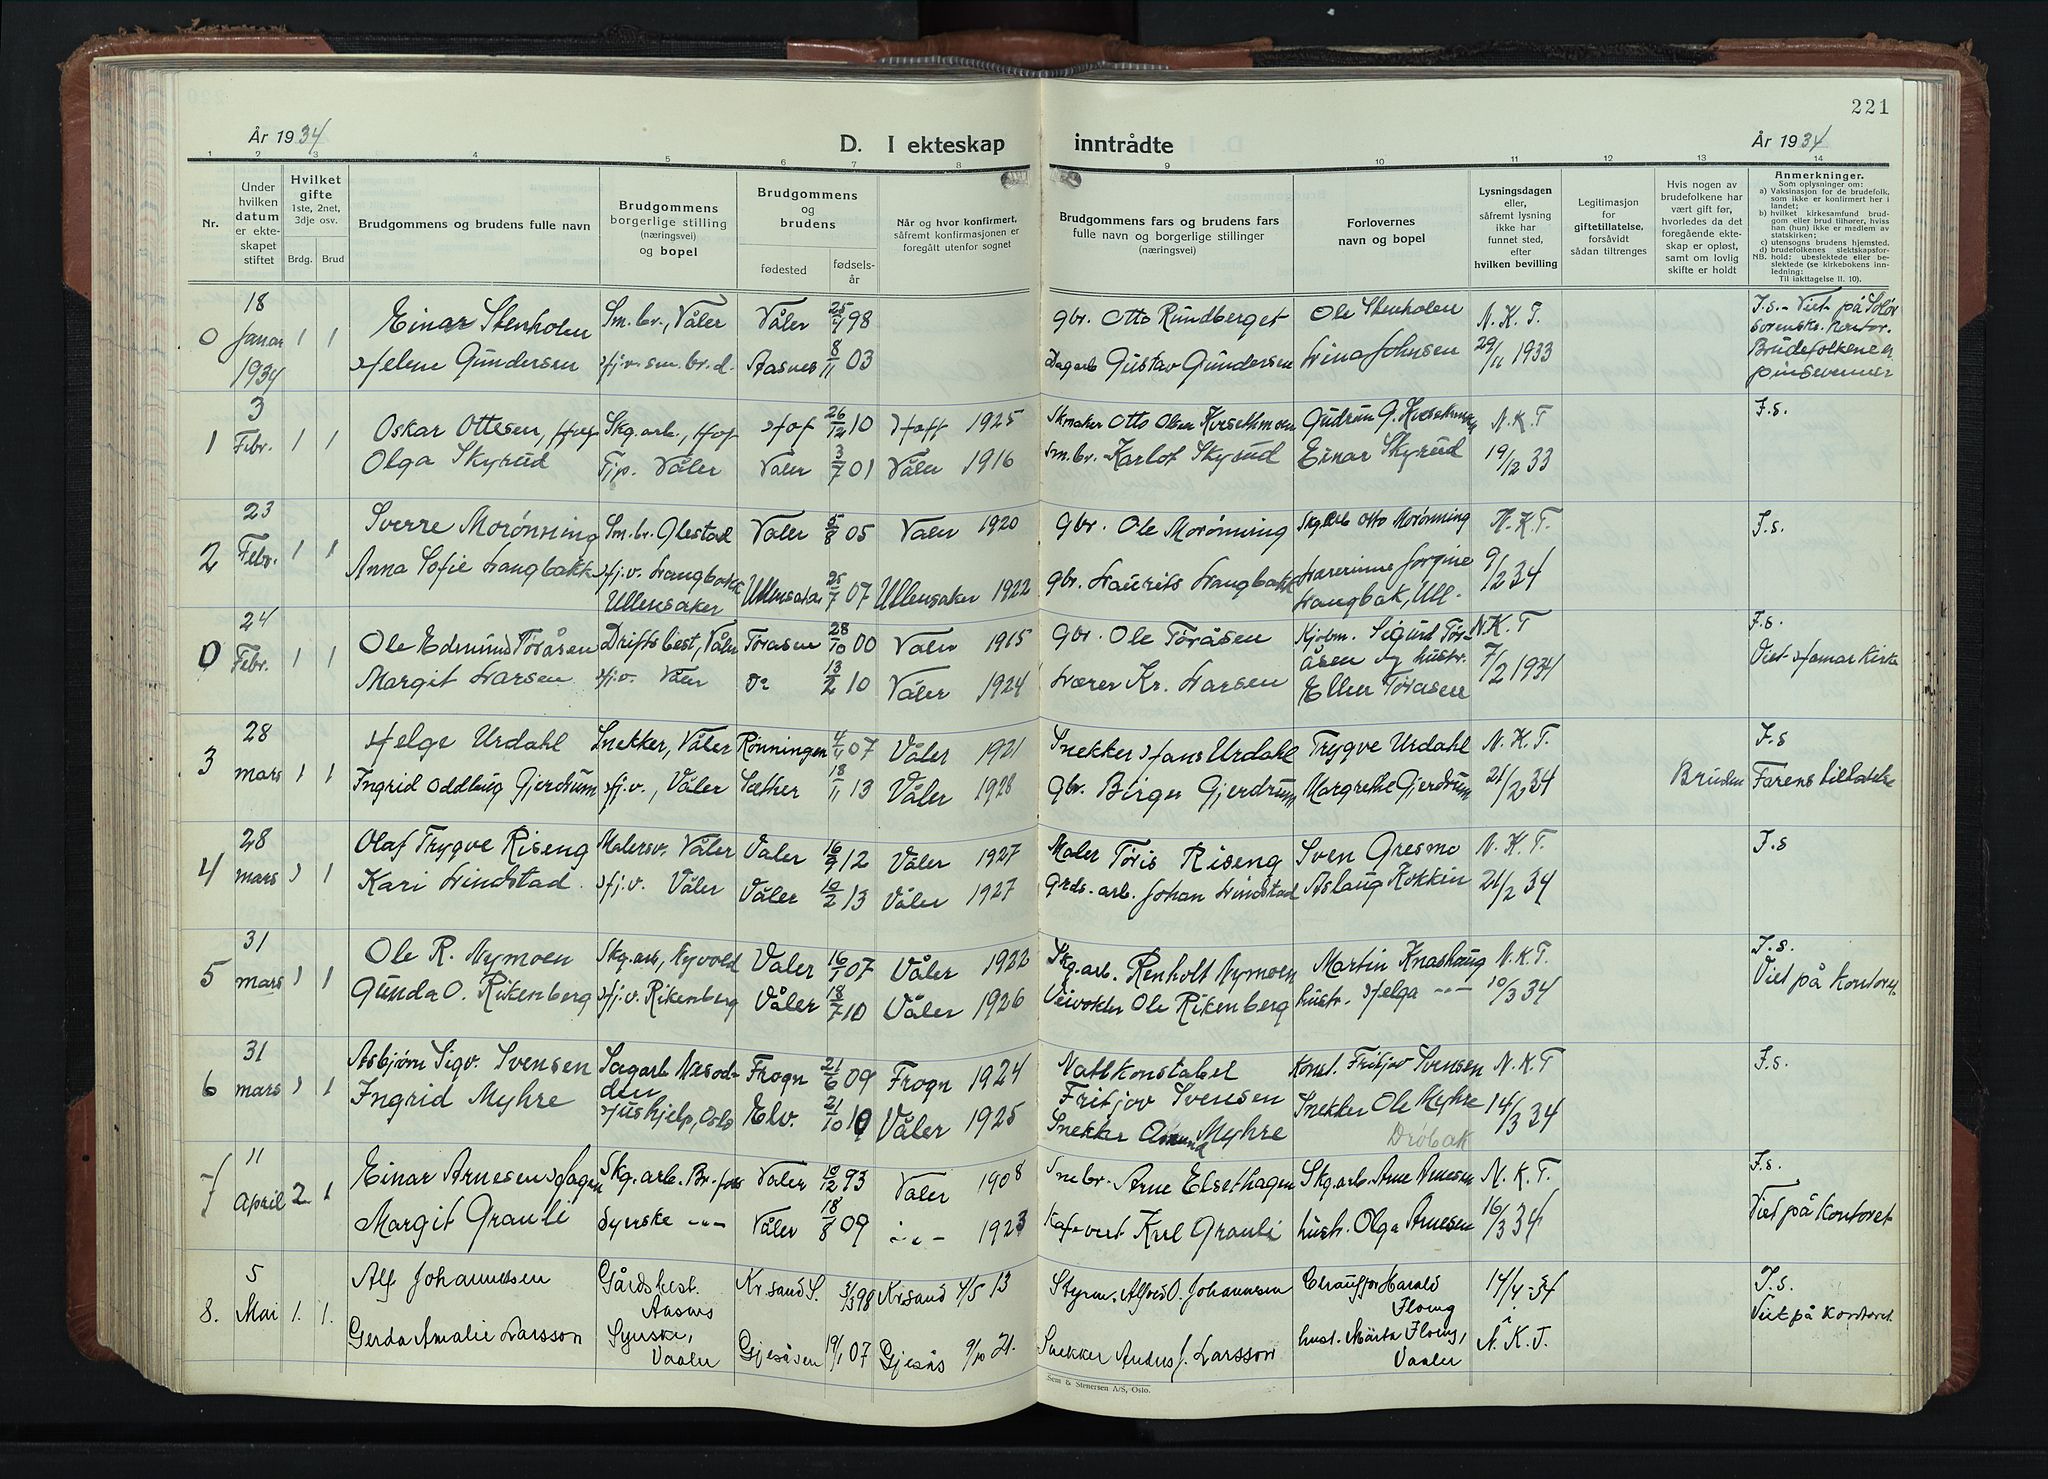 221
År 1934
D. I ekteskap inntrådte
År 1934
1 2 3 4 5 6 7 8 9 10 11 12 13 14
Nr.
Under hvilken datum er ekteskapet stiftet
Hvilket gifte 1ste, 2net, 3dje osv.
Brdg. Brud
Brudgommens og brudens fulle navn
Brudgommens borgerlige stilling (næringsvei) og bopel
Brudgommens og brudens
fødested
fødselsår
Når og hvor konfirmert, såfremt konfirmasjonen er foregått utenfor sognet
Brudgommens fars og brudens fars fulle navn og borgerlige stillinger (næringsvei)
Forlovernes navn og bopel
Lysningsdagen eller, såfremt lysning ikke har funnet sted, efter hvilken bevilling
Legitimasjon for giftetillatelse, forsåvidt sådan tiltrenges
Hvis nogen av brudefolkene har vært gift før, hvorledes da det foregående ekteskap er opløst, samt om lovlig skifte er holdt
Anmerkninger.
Som oplysninger om:
a) Vaksinasjon for de brudefolk, som ikke er konfirmert her i landet;
b) hvilket kirkesamfund brudgom eller brud tilhører, hviss han (hun) ikke er medlem av statskirken;
c) utensogns brudens hjemsted.
d) brudefolkenes slektskapsforhold: ubeslektede eller beslektede (se kirkebokens innledning:
NB.
Til iakttagelse II. 10).
0 18 Januar 1934 1 1 Einar Stenholen Sm.br., Våler Våler 25/4 98 gbr. Otto Rundberget Ole Stenholen N.K.T. I.s. - Viet på Solør sorensk. kontor.
Helene Gundersen Hj.v. sm.br.d. Aasnes 8/11 03 Dagarb Gustav Gundersen Lina Johnsen 29/11 1933 Brudefolkene er pinsevenner
1 3 Febr. 1 1 Oskar Ottesen, Hof Skg.arb., Hof Hof 26/12 10 Hoff 1925 Skmaker Otto Olsen Kvesethmoen Gudrun G. N.K.T I.s.
Olga Skyrud Tjp. Våler Våler 3/7 01 Våler 1916 Sm.br. Karlot Skyrud Einar Skyrud 19/12 33
2 23 Febr. 1 1 Sverre Morønning Sm.br. Glestad Våler 5/8 05 Våler 1920 gbr. Ole Morønning Skg.arb Otto Morønning N.K.T. I.s.
Anna Sofie Langbakk Hj.v. Langbakk Ullensaker Ullensaker 25/7 07 Ullensaker 1922 gbr. Laurits Langbakk Lærerinne Jorgine Langbak, Ull. 9/2 34
0 24 Febr. 1 1 Ole Edmund Töråsen Driftsbest, Våler Töråsen 28/10 00 Våler 1915 gbr. Ole Töråsen Kjøbm. Sigurd Töråsen og hustr. N.K.T I.s.
Margit Larsen Hj.v. Våler Do 13/2 10 Våler 1924 Lærer Kr. Larsen Ellen Töråsen 7/2 1934 Viet Hamar Kirke
3 28 mars 1 1 Helge Urdahl Snekker, Våler Rønningen 4/4 07 Våler 1921 Snekker Hans Urdahl Trygve Urdahl N.K.T. I.s
Ingrid Oddbug Gjerdrum Hj.v., Våler Sæther 18/11 13 Våler 1928 gbr. Birger Gjerdrum Margrethe Gjerdrum 21/2 34 Bruden Farens tillatelse
4 28 mars 1 1 Olaf Trygve Riseng Malersv. Våler Våler 16/9 12 Våler 1927 Maler Töris Riseng Sven Gresmo N.K.T. I.s
Kari Lindstad Hj.v. Våler Våler 10/2 13 Våler 1927 Grds.arb. Johan Lindstad Aslaug Kokkin 21/2 34
5 31 mars 1 1 Ole R. Nymoen Skg.arb, Nyvold Våler 16/1 07 Våler 1922 Skg.arb. Renholt Nymoen Martin Knashaug N.K.T. I.s.
Gunda O. Rikenberg Hj.v. Rikenberg Våler 18/7 10 Våler 1926 Veivokter Ole Rikenberg hustr. Helga -"- 10/3 34 Viet på Kontoret
6 31 mars 1 1 Asbjørn Sigv. Svensen Sagarb Nesodden Frogn 21/6 09 Frogn 1924 Nattkonstabel Fritjov Svensen Konst. Fritjov Svensen N.K.T I.s.
Ingrid Myhre Hushjelp, Oslo Elv. 21/10 10 Våler 1925 Snekker Amund Myhre Snekker Ole Myhre Drøbak 14/3 34
7 11 April 2 1 Einar Arnesen Hagen Skg.arb. Br.foss Våler 10/12 93 Våler 1908 Smbr. Arne Elsethagen Skg.arb. Arne Arnesen N.K.T. I.s.
Margit Grauli Syerske -"- Våler 18/8 09 -"- 1923 Kafevert Karl Grauli hustr. Olga Arnesen 16/3 34 Viet på kontoret
8. 5 Mai 1. 1. Alf Johannesen Gårdsbest. Aasnes Kr.sand S. 3/3 98 Krsand 4/5 13 Styrm. Alfred O. Johannesen Chauffør Harald Floeng 14/4-34 I.s.
Gerda Amalie Larsson Syerske, Vaaler Gjesåsen 19/1 07 Gjesås 9/10 21. Snekker Anders J. Larsson hust. Märta Floeng, Vaaler N.K.T. Viet på kontoret.
Sem & Stenersen A/S, Oslo.